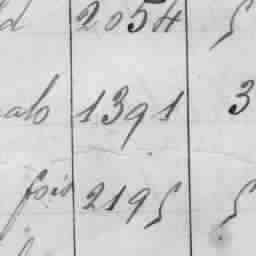 d 2054 5
ab 1391 3
fois 2195 5